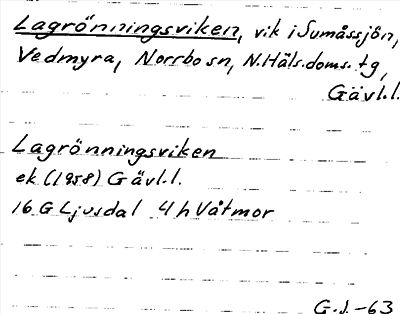 Lagrönningsviken, vik i Sumåssjön,
Vedmyra, Norrbo sn, N.Häls.doms.tg,
Gävl.l.
Lagrönningsviken
ek (1958) Gävl.l.
16 G Ljusdal 4 h Våtmor
G.J.-63